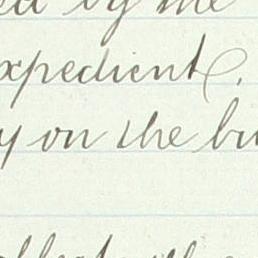 ed by me
xpedient.
y on the bu